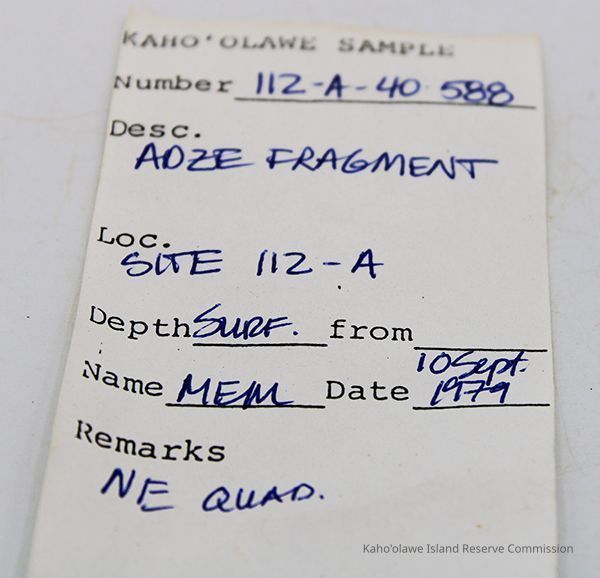 KAHO'OLAWE SAMPLE
Number 112-A-40 588
Desc.
ADZE FRAGMENT
Loc.
SITE 112-A
Depth SURF. from
10 Sept.
Name MEM Date 1979
Remarks
NE QUAD.
Kaho'olawe Island Reserve Commission